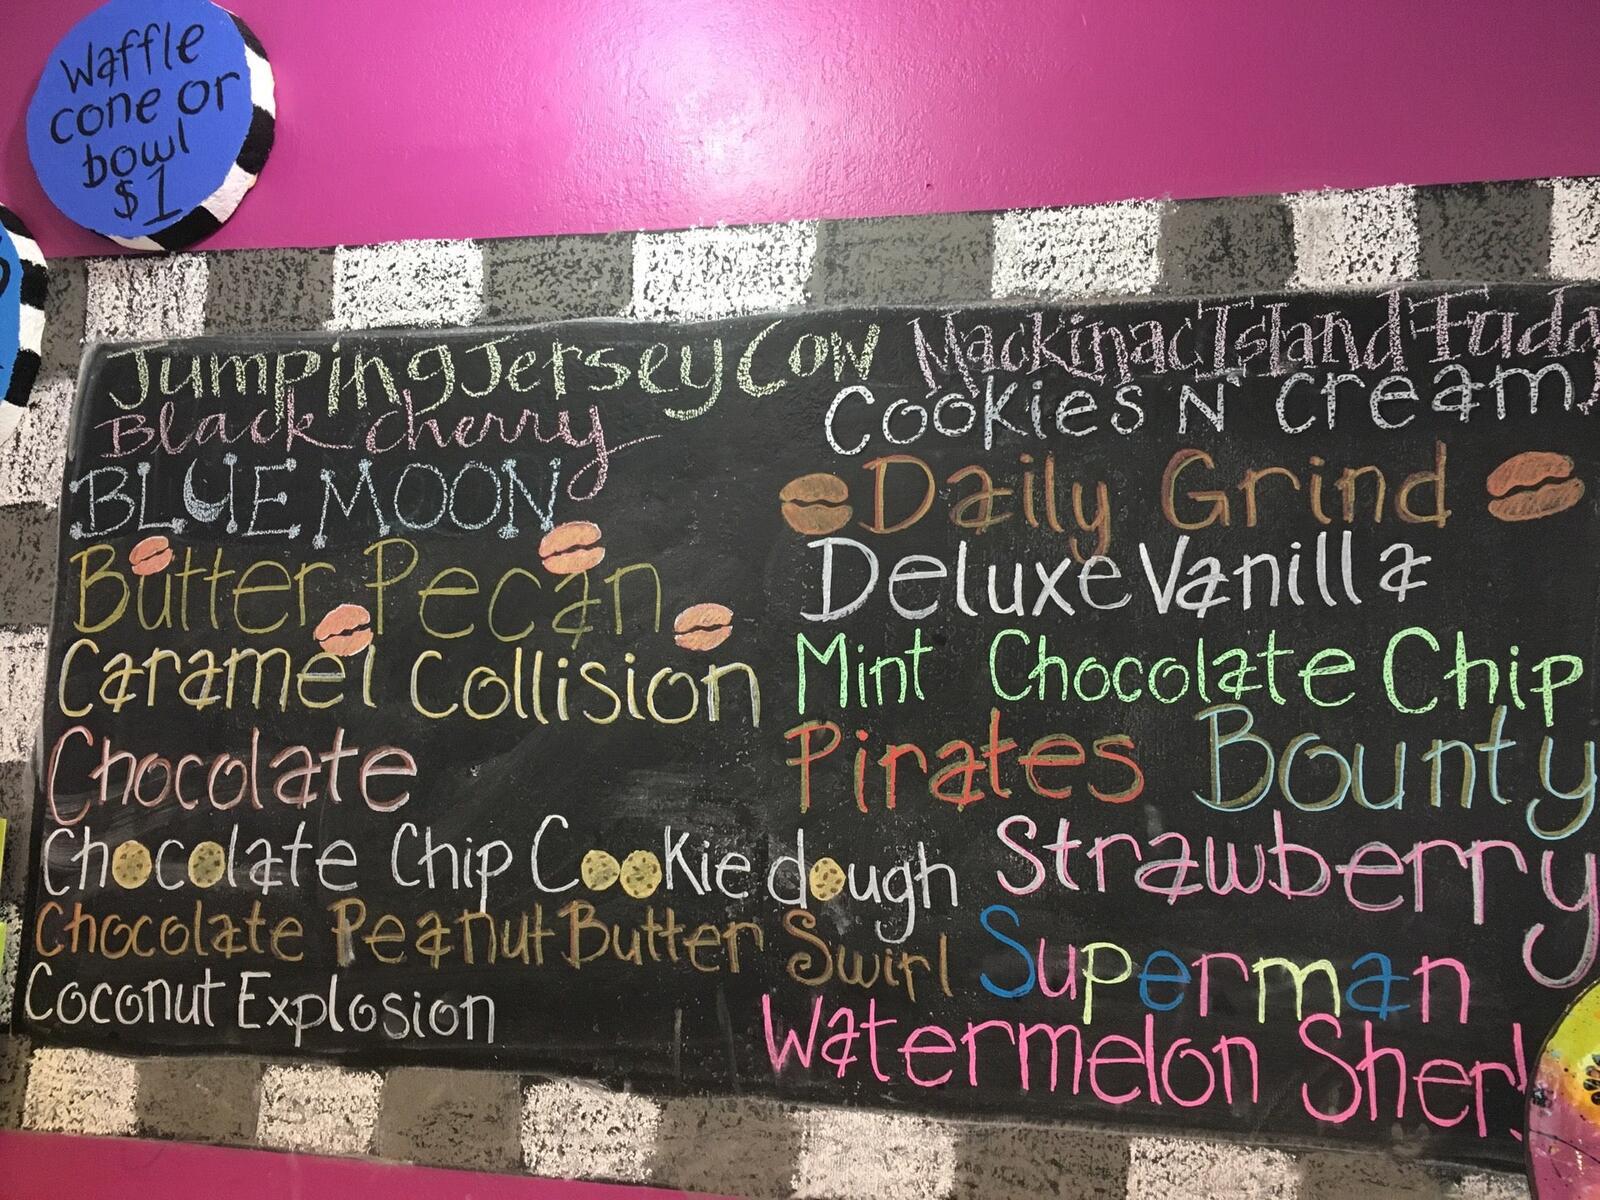 Waffle
cone or
bowl
$1
Jumping Jersey Cow
Black cherry
BLUE MOON
Butter Pecan
Caramel Collision
Chocolate
Chocolate Chip Cookie dough
Chocolate Peanut Butter Swirl
Coconut Explosion
Mackinac Island
Cookies N' Cream
Daily Grind
Deluxe Vanilla
Mint Chocolate Chip
Pirates Bounty
Strawberry
Superman
Watermelon